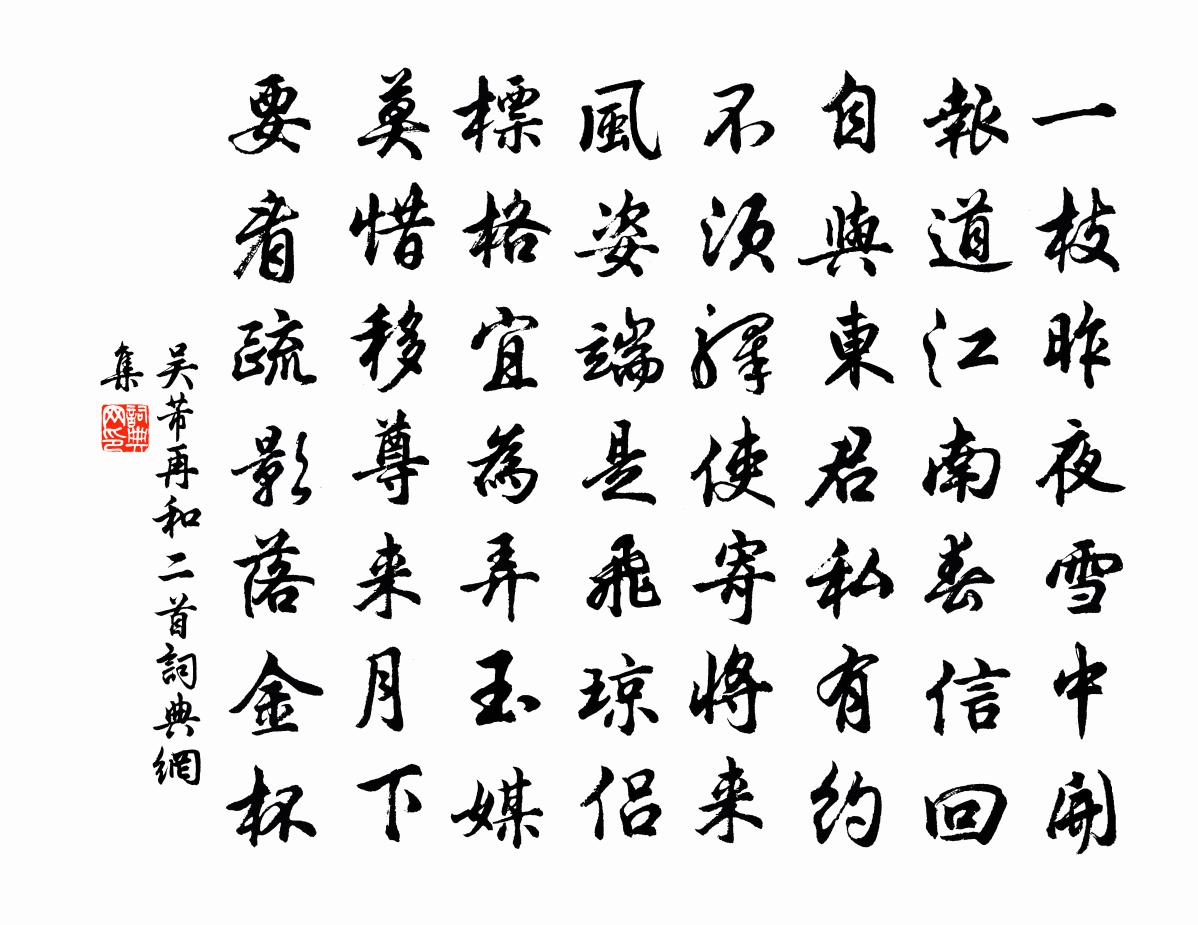 一枝昨夜雪中開
報道江南春信回
自與東君私有約
不須驛使寄將来
風姿端是飛瓊侣
標格宜為弄玉媒
莫惜移尊来月下
要看疏影落金杯
吴芾再和二首詞典網
集
詞典
网印